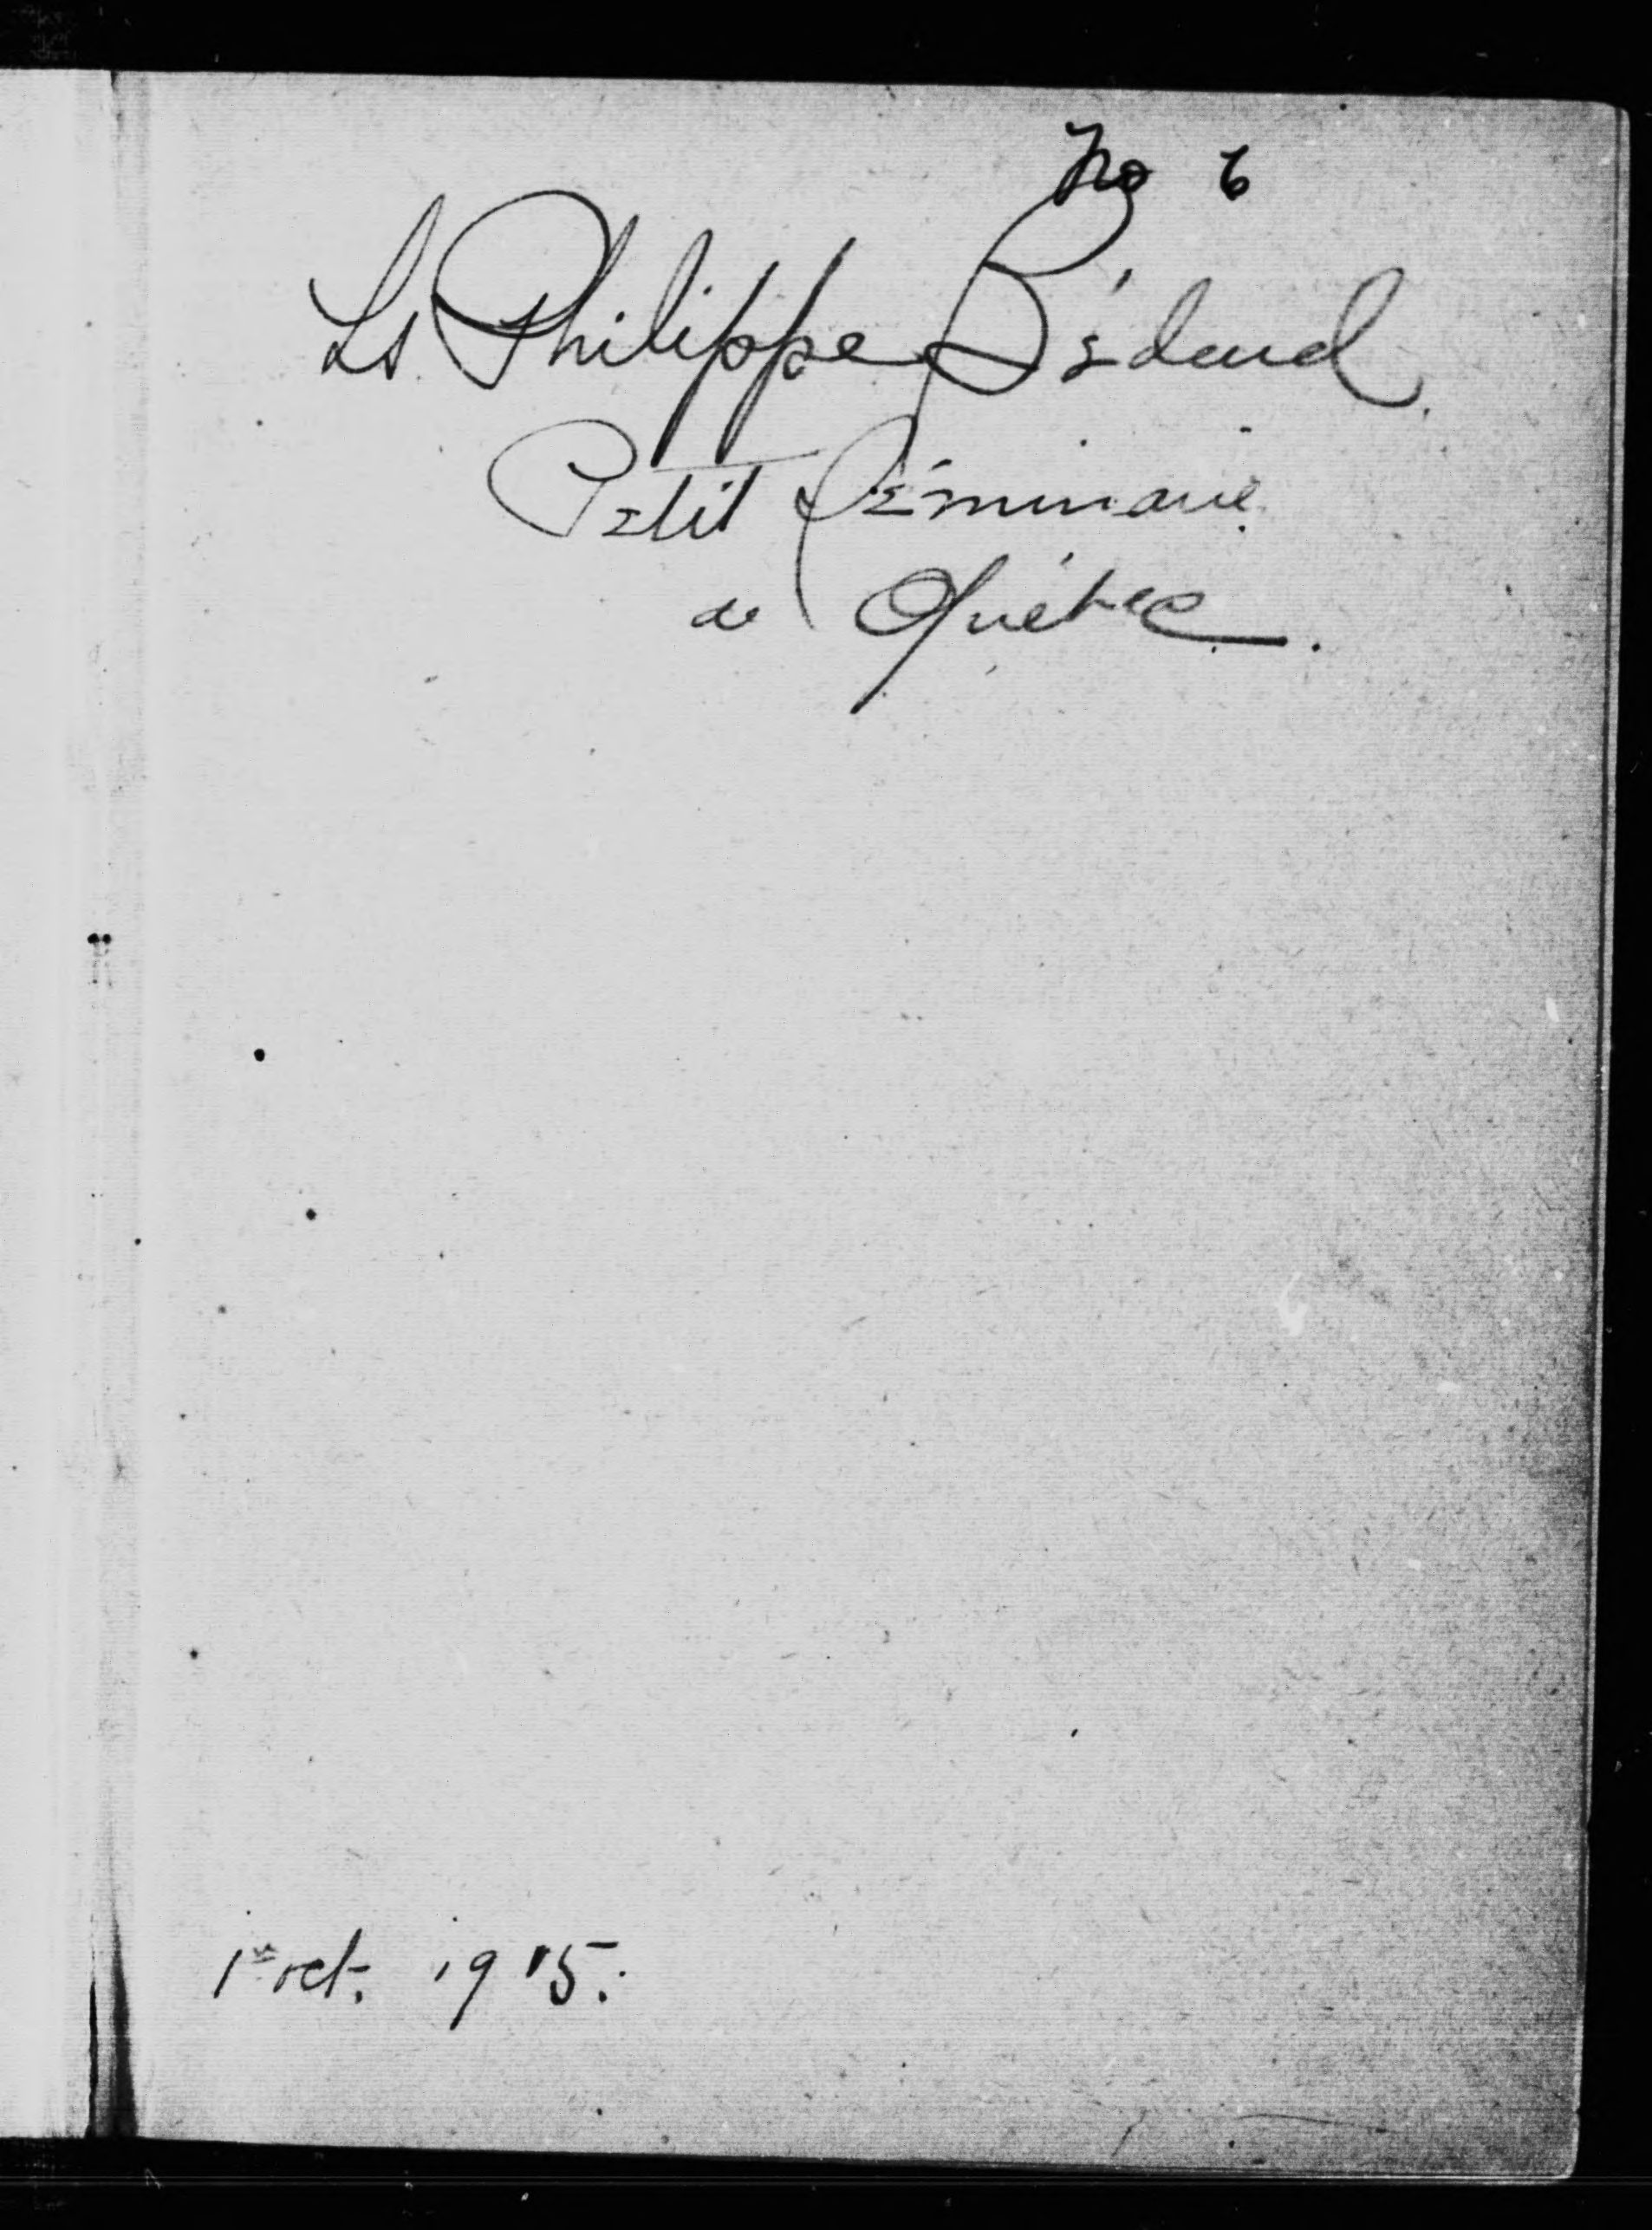 No 6
Ls Philippe Bédard.
Petit Séminaire
de Québec.
1er oct. 1915.